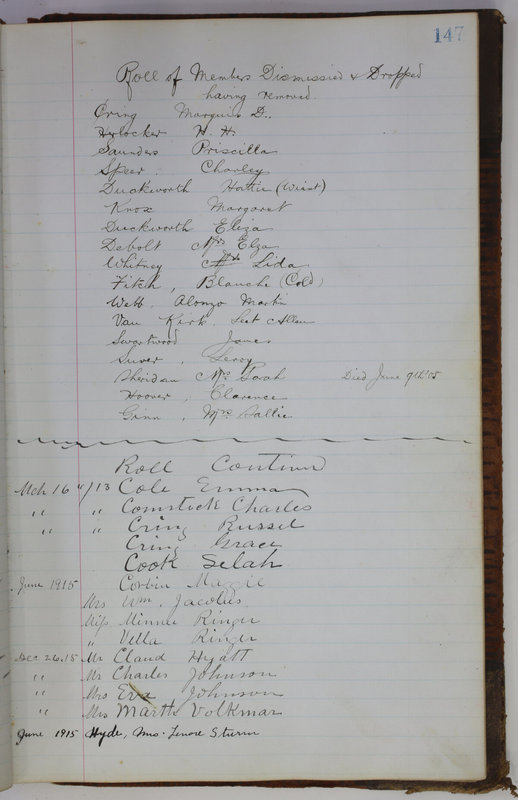 147
Roll of Members Dismissied & Dropped
having removed.
Cring Marquis D.
Herlocker H. H.
Saunders Priscilla
Speer. Charley
Duckworth Hattie (Wirst)
Knox Margaret
Duckworth Eliza
Debolt Mrs Elza
Whitney Lida
Fitch, Blanche (Cold)
Webb. Alonzo Martin
Van Kirk. Allen
Swartwood James
Suver, Leroy
Sheridan Mrs Sarah Died June 9th 05
Hoover, Clarence
Ginn, Mrs Sallie
Roll Continud
Mch 16th/13 Cole Emma
" " Comstick Charles
" " Cring Russel
Cring Grace
Cook Selah
June 1915 Corbin Mazie
Mrs Wm. Jacobus
Miss Minnie Ringer
" Vella Ringer
Dec 26.15 Mr Claud Hyatt
" Mr Charles Johnson
" Mrs Eva Johnson
" Mrs Martha Volkmar
June 1915 Hyde, Mrs. Lenore Sturm